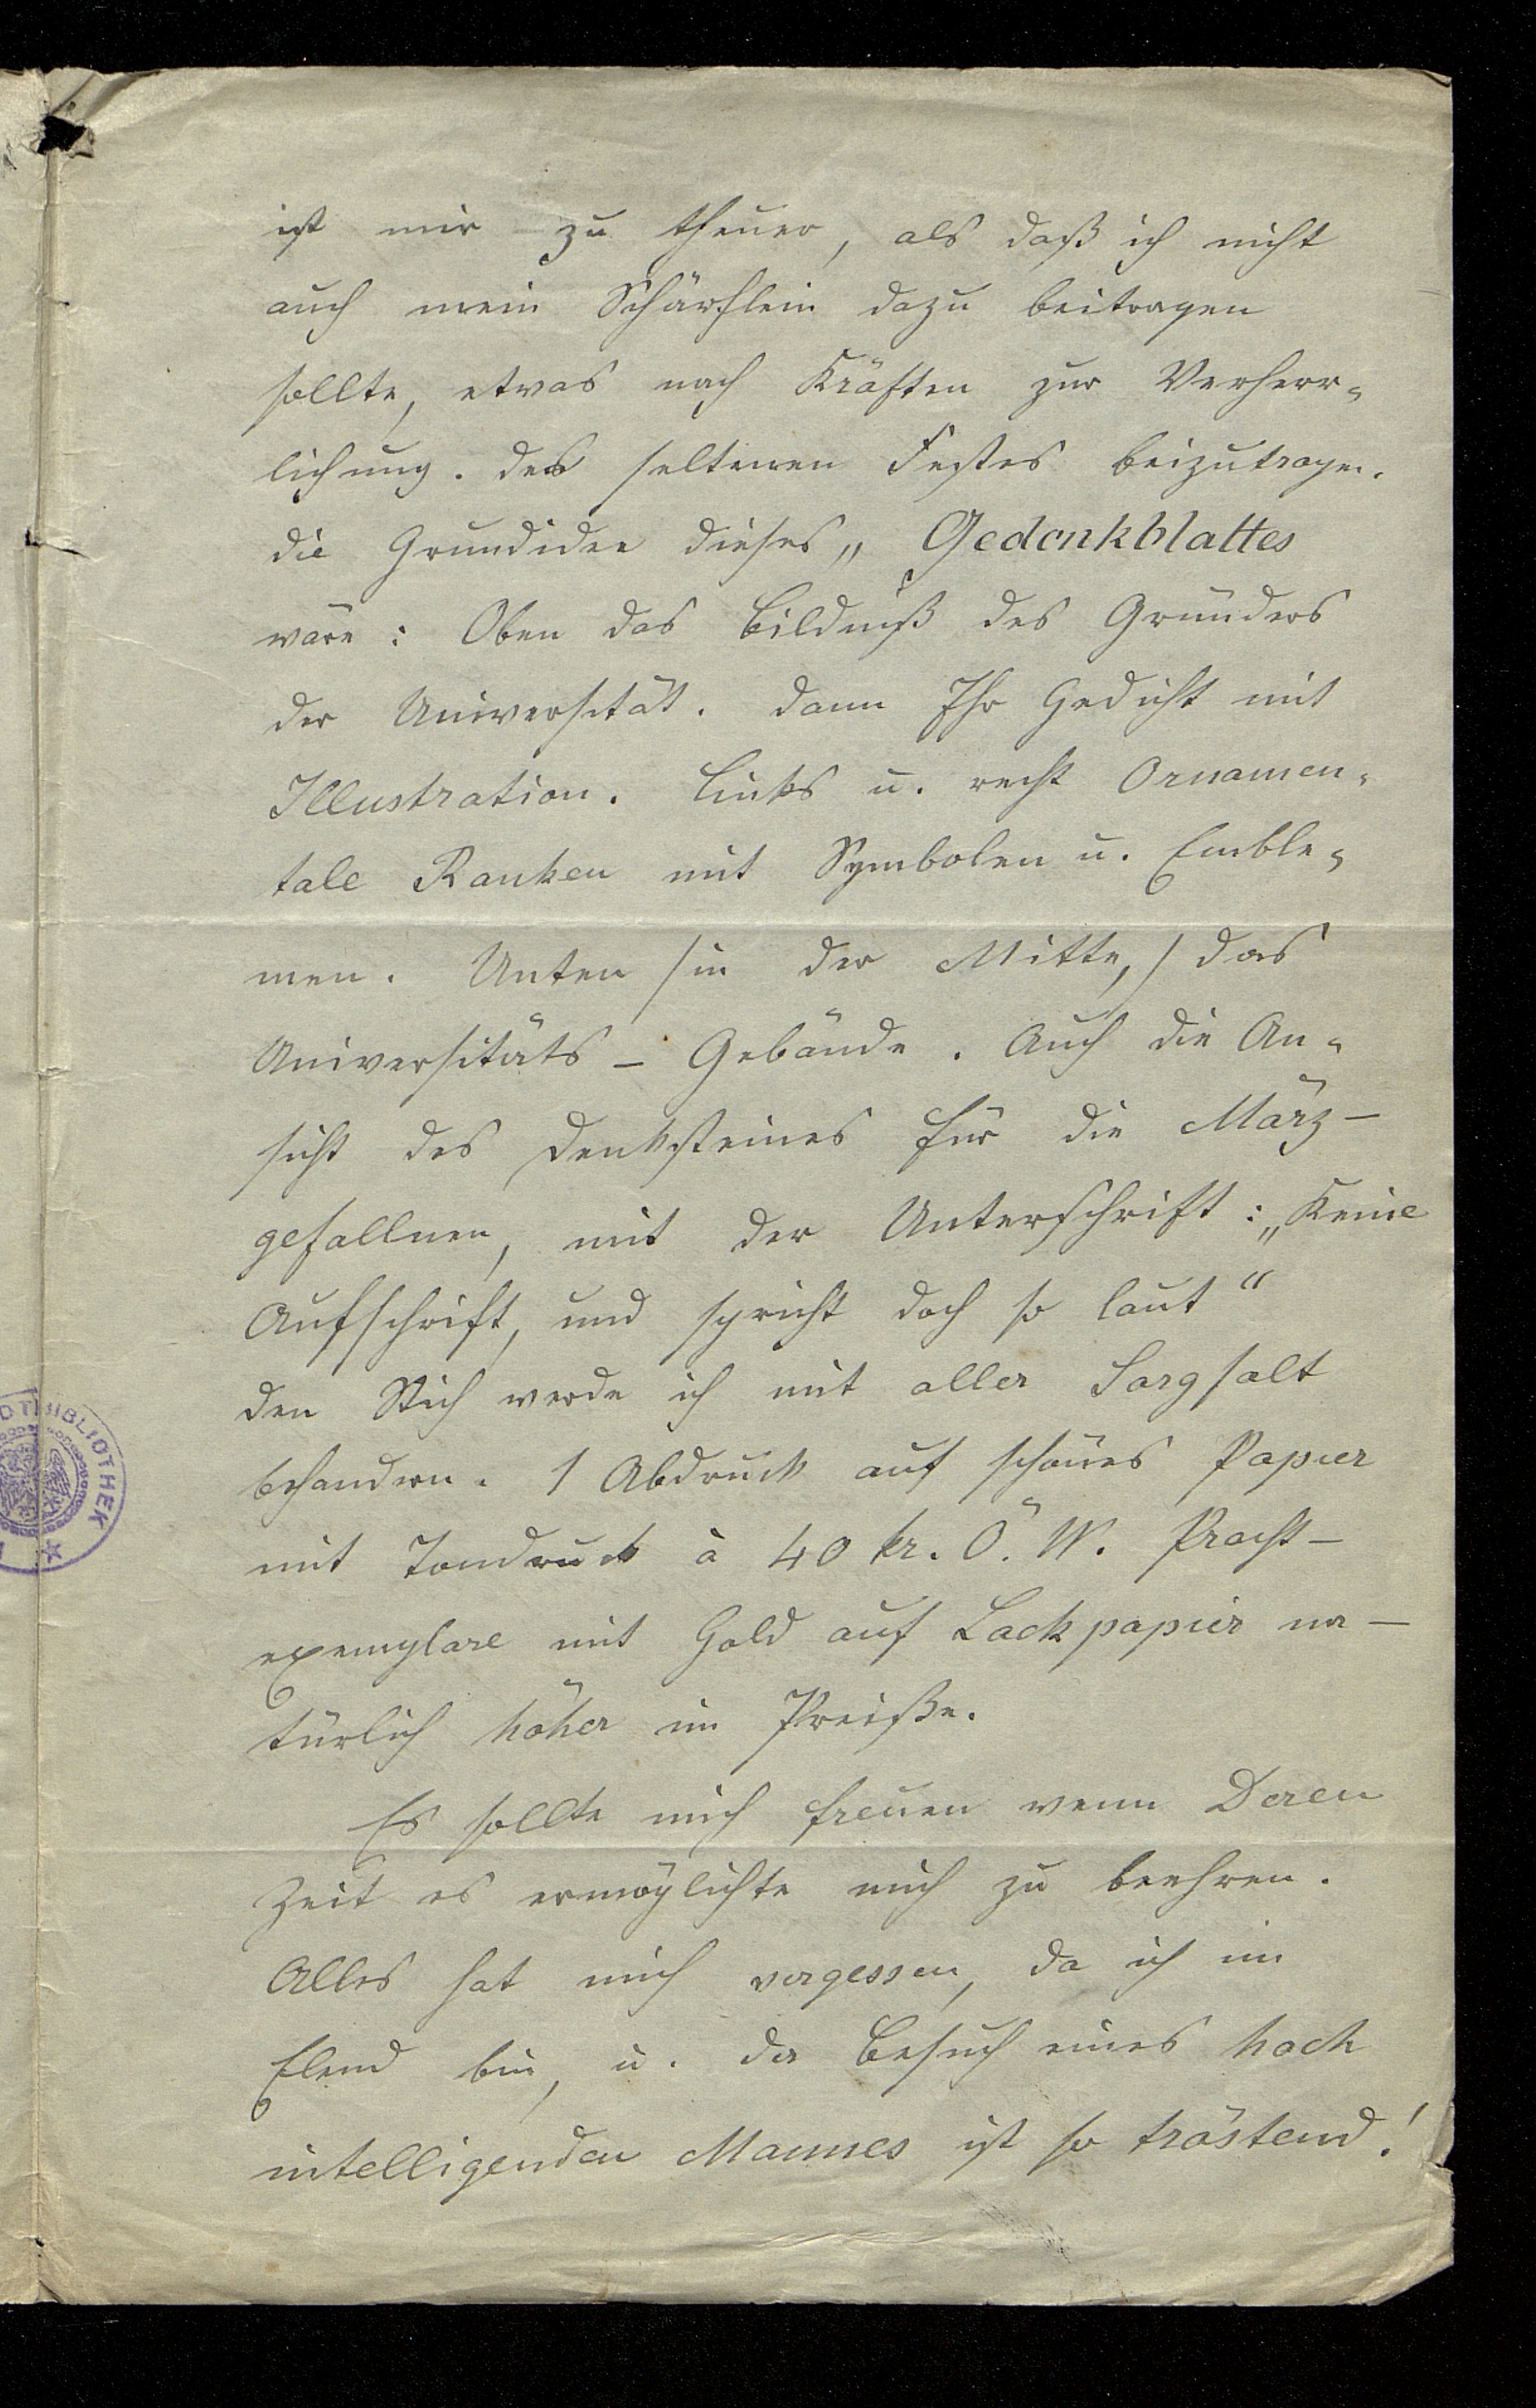 ist mir zu theuer, als daß ich nicht
auch mein Schärflein dazu beitragen
sollte, etwas nach Kräften zur Verherr-
lichung. des seltenen Festes beizutragen.
die Grundidee dieses „Gedenkblattes
wäre: Oben das Bildniß des Gründers
der Universität. dann Ihr Gedicht mit
Illustration. Links u. recht Ornamen-
tale Ranken mit Symbolen u. Emble-
men. Unten /in der Mitte,/ das
Universitäts-Gebäude. Auch die An-
sicht des Denksteines für die März-
gefallnen, mit der Unterschrift: „Keine
Aufschrift, und spricht doch so laut“
den Stich werde ich mit aller Sorgfalt
behandeln. 1 Abdruck auf schönes Papier
mit Tondruck à 40 kr. Ö. W. Pracht-
exemplare mit Gold auf Lackpapier na-
türlich höher im Preiße.
Es sollte mich freuen wenn Deren
Zeit es ermöglichte mich zu beehren.
Alles hat mich vergessen, da ich im
Elend bin, u. der Besuch eines hoch
intelligenden Mannes ist so tröstend!
BIBLIOTHEK